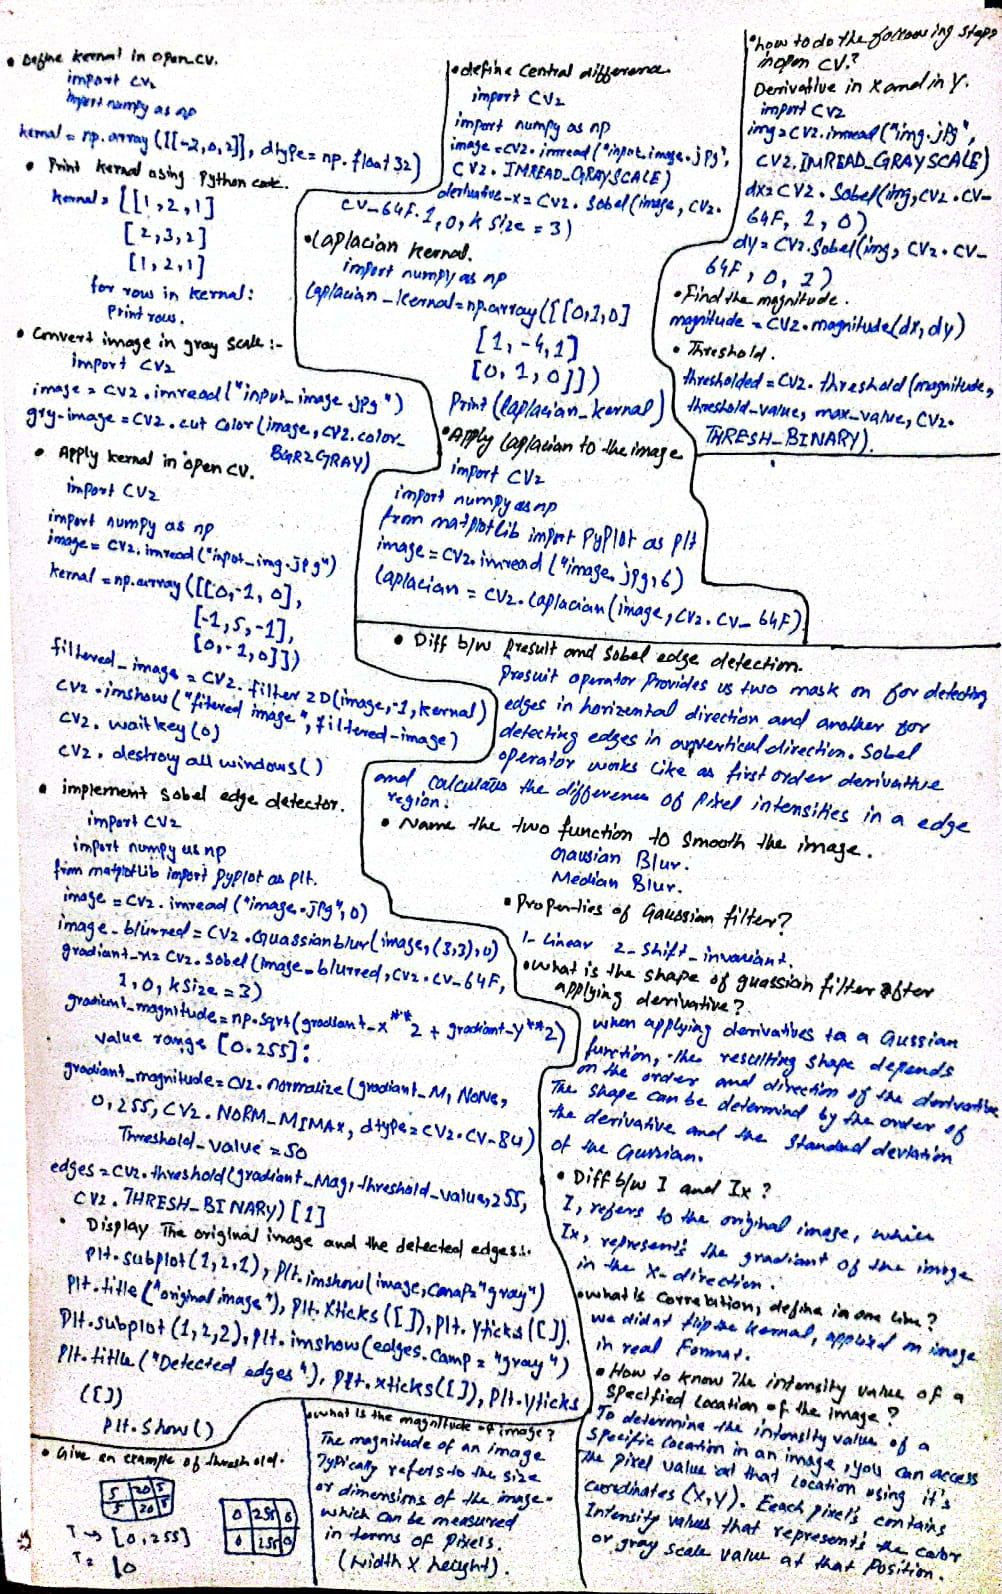 • Define kernal in open cv.
import cv2
import numpy as np
kernal = np.array([[-2,0,2]], dtype= np.float32)
• Print kernal using Python code.
kernal = [[1,2,1]
[2,3,2]
[1,2,1]
for row in kernal:
Print row.
• Convert image in gray scale :-
import cv2
image = cv2.imread("input_image.jpg")
gry-image = cv2.cut color(image, cv2.color_
BGR2GRAY)
• Apply kernal in open cv.
import cv2
import numpy as np
image = cv2.imread("inpot_img.jpg")
kernal = np.array([[0,-1,0],
[-1,5,-1],
[0,-1,0]])
filtered_image = cv2.filter 2D(image,-1,kernal)
cv2.imshow("fitered image", filtered-image)
cv2.waitkey(0)
cv2.destroy all windows()
• implement sobel edge detector.
import cv2
import numpy as np
from matplotlib import pyplot as plt.
image = cv2.imread("image.jpg",0)
image_blurred = cv2.Guassianblur(image,(3,3),0)
gradiant_x= cv2.sobel(image_blurred,cv2.cv_64F,
1,0,ksize=3)
gradient_magnitude= np.sqrt(gradiant_x**2 + gradiant-y**2)
value range [0.255]:
gradiant_magnitude= cv2.normalize(gradiant_M, None,
0,255, cv2.NORM_MIMAX, dtype= cv2.CV-8U)
Threshold_value = 50
edges = cv2.threshold(gradiant_Mag, threshold_value, 255,
cv2.THRESH_BINARY)[1]
• Display The original image and the detected edges:.
plt.subplot(1,2,1), plt.imshow(image,cmap="gray")
Plt.title("original image"), plt.Xticks([]), plt.yticks([]).
Plt.subplot(1,2,2), plt.imshow(edges.camp = "gray")
Plt.title("Detected edges"), plt.xticks([]), plt.yticks
([])
plt.show()
• Give an example of threshold.
5 20 5
5 20 5
0 255 0
0 255 0
T → [0,255]
• define Central difference.
import cv2
import numpy as np
image = cv2.imread("input.image.jpg",
cv2.IMREAD_GRAYSCALE)
derivative-x= cv2.sobel(image, cv2.
cv-64F.1,0,k size = 3)
• Laplacian kernal.
import numpy as np
laplacian_kernal=np.array([[0,1,0]
[1,-4,1]
[0,1,0]])
Print (laplacian_kernal)
• Apply laplacian to the image
import cv2
import numpy as np
from matplotlib import PyPlot as plt
image = cv2.imread("image.jpg,6)
laplacian = cv2.laplacian(image, cv2.cv_64F).
• how to do the following steps
in open cv?
Derivative in X and in Y.
import cv2
img = cv2.imread("img.jpg",
cv2.IMREAD_GRAYSCALE)
dx= cv2.Sobel(img,cv2.cv-
64F, 1, 0)
dy= cv2.Sobel(img, cv2.cv-
64F, 0, 1)
• Find the magnitude.
magnitude = cv2.magnitude(dx,dy)
• Threshold.
thresholded = cv2.threshold(magnitude,
threshold-value, max_value, cv2.
THRESH_BINARY).
• Diff b/w Presult and Sobel edge detection.
Presuit operator Provides us two mask on for detecting
edges in horizental direction and another for
detecting edges in vertical direction. Sobel
operator works like as first order derivative
and calculates the difference of Pixel intensities in a edge
region.
• Name the two function to smooth the image.
Gausian Blur.
Median Blur.
• Properties of Gaussian filter?
1- Linear 2- Shift_invariant.
• what is the shape of guassian filter after
applying derivative?
when applying derivatives to a Gussian
function, the resulting shape depends
on the order and direction of the derivative
The shape can be determind by the order of
the derivative and the standard deviation
of the Gussian.
• Diff b/w I and Ix ?
I, refers to the original image, while
Ix, represents the gradient of the image
in the X-direction.
• what is Correlation, define in one line?
we didnt flip the kernal, applied on image
in real Format.
• How to know The intensity value of a
specified location of the image?
To determine the intensity value of a
specific location in an image, you can access
The pixel value at that location using it's
coordinates (X,Y). Each pixel contains
Intensity values that represents the color
or gray scale value at that Position.
• what is the magnitude of image?
The magnitude of an image
Typically refers to the size
or dimensions of the image.
which can be measured
in terms of pixels.
(width X height).